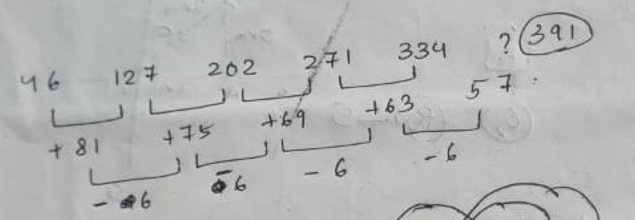 46 127 202 271 334 ? 391
+81 +75 +69 +63 57
-6 -6 -6 -6